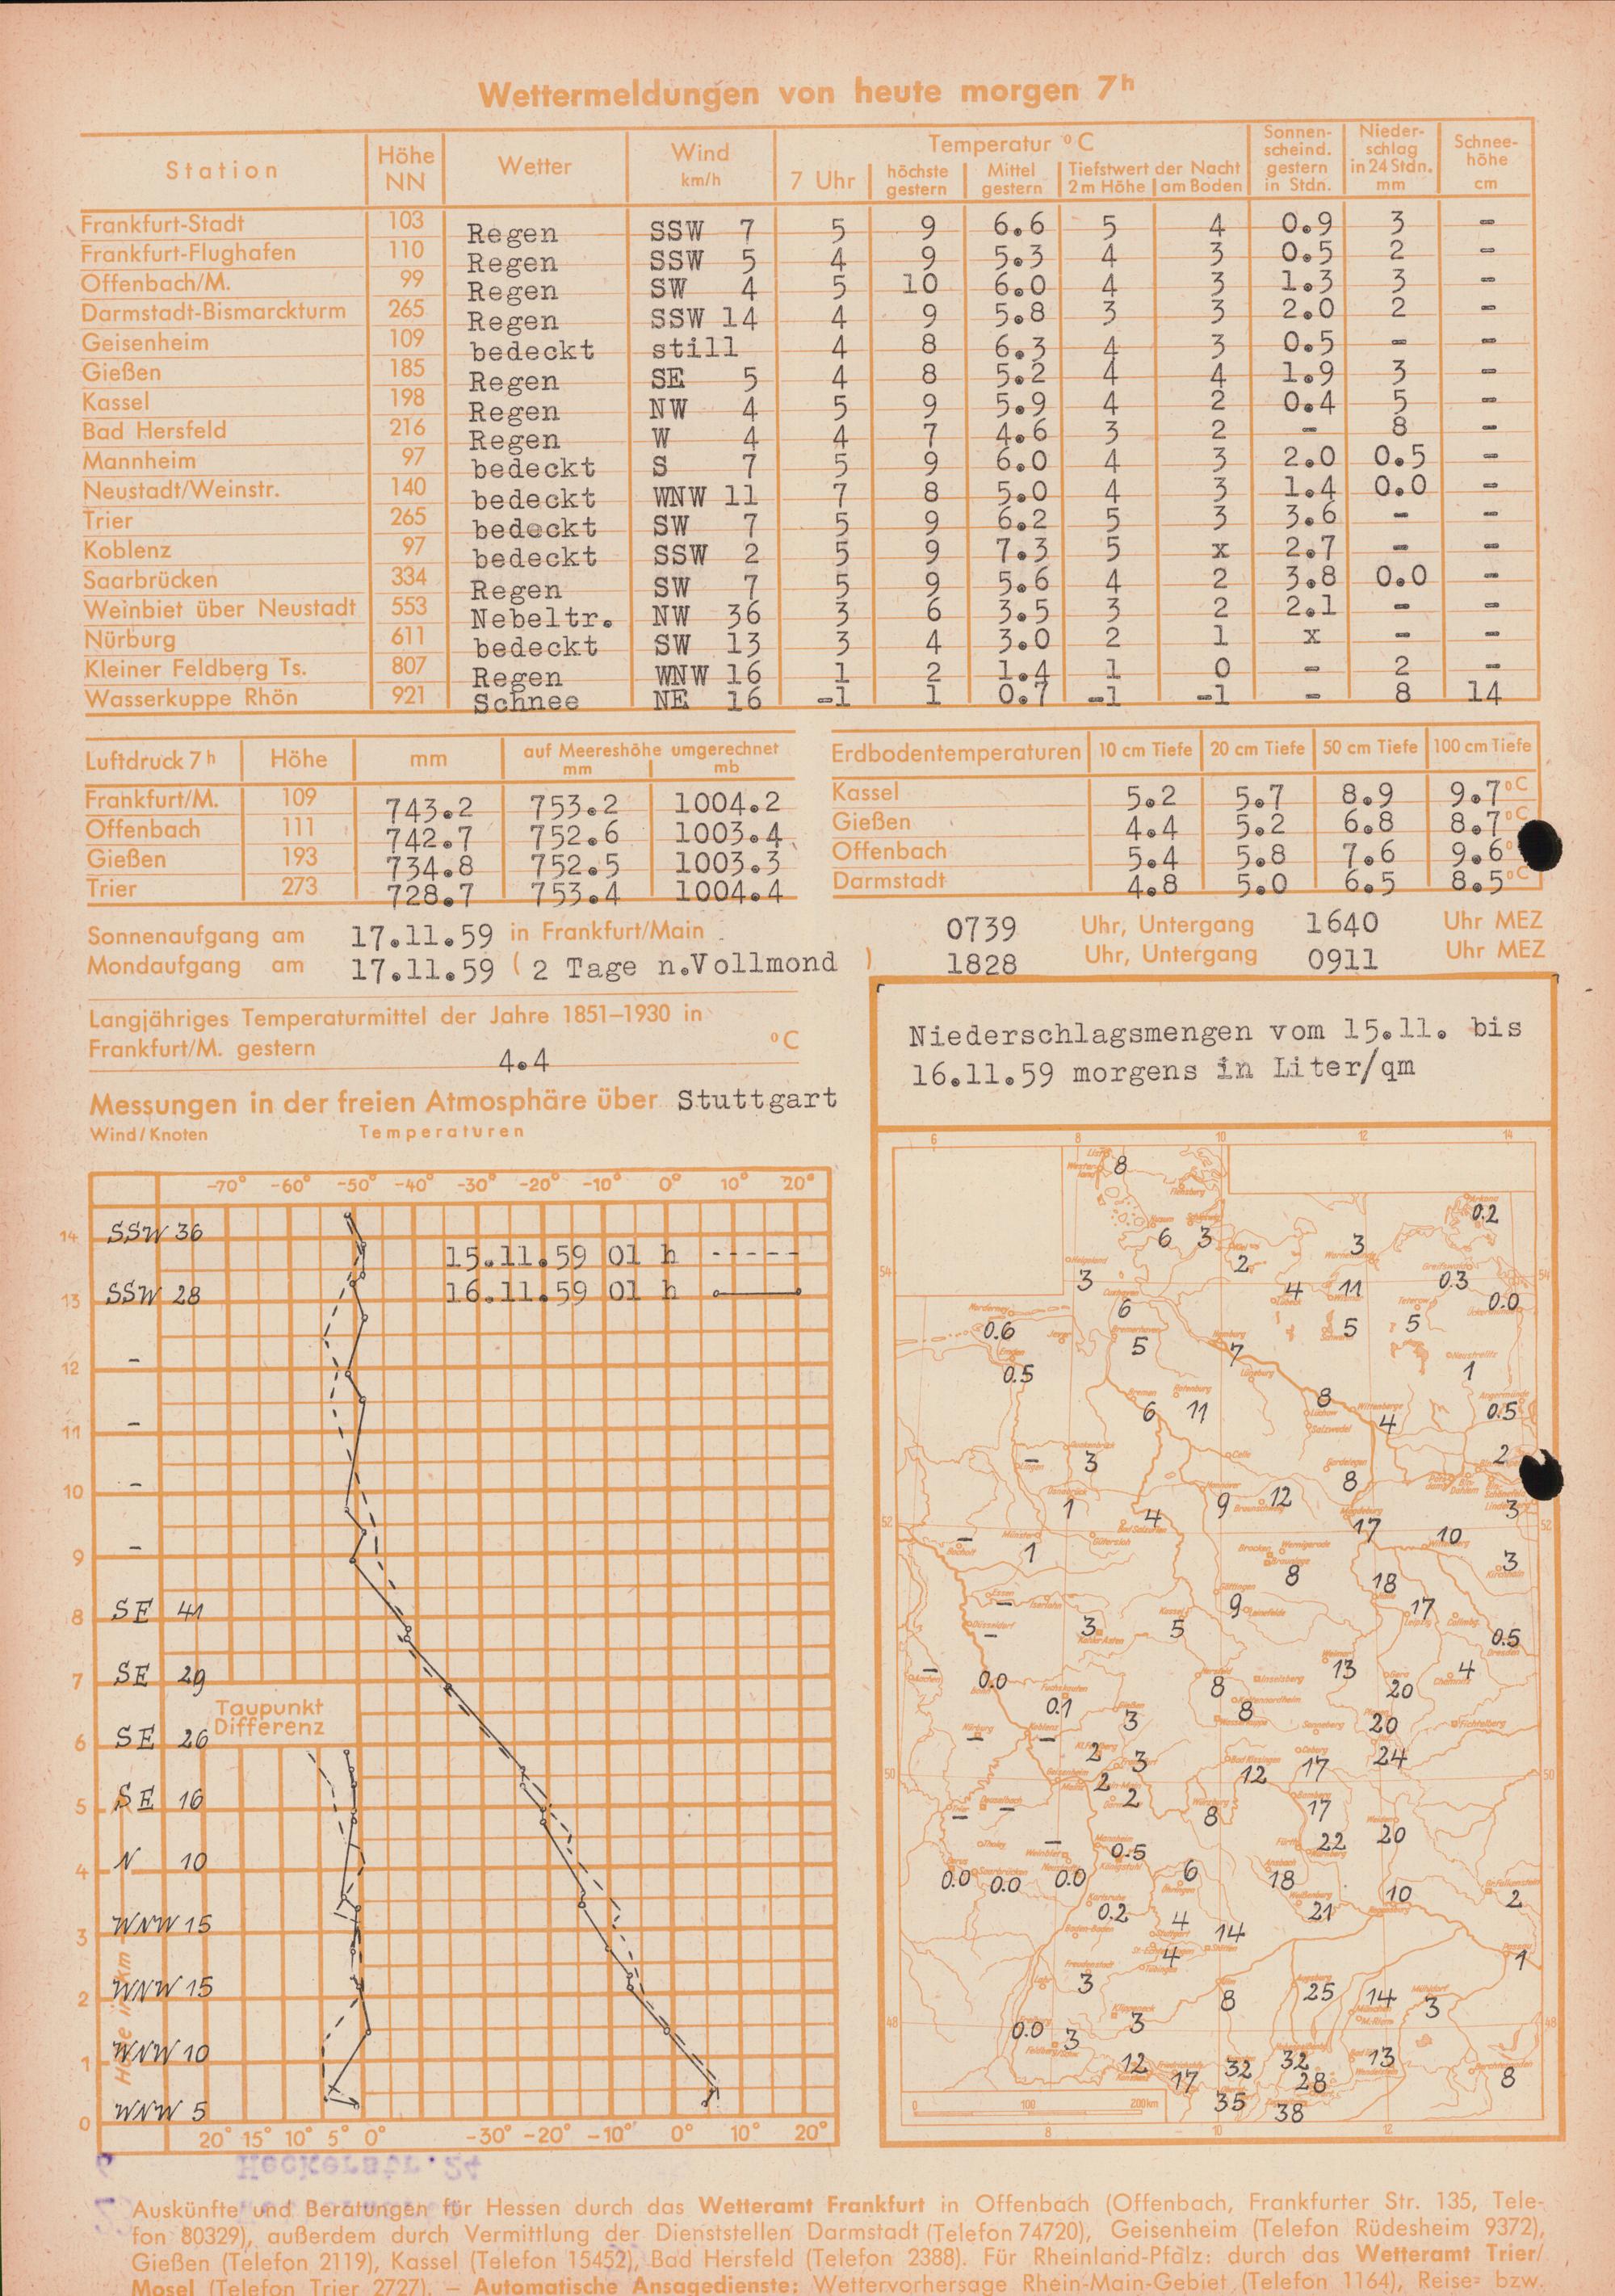 Wettermeldungen von heute morgen 7h
Station Höhe NN Wetter Wind km/h Temperatur °C Sonnenscheind. gestern in Stdn. Niederschlag in 24 Stdn. mm Schneehöhe cm
7 Uhr höchste gestern Mittel gestern Tiefstwert der Nacht 2m Höhe am Boden
Frankfurt-Stadt 103 Regen SSW 7 5 9 6.6 5 4 0.9 3 -
Frankfurt-Flughafen 110 Regen SSW 5 4 9 5.3 4 3 0.5 2 -
Offenbach/M. 99 Regen SW 4 5 10 6.0 4 3 1.3 3 -
Darmstadt-Bismarckturm 265 Regen SSW 14 4 9 5.8 3 3 2.0 2 -
Geisenheim 109 bedeckt still 4 8 6.3 4 3 0.5 - -
Gießen 185 Regen SE 5 4 8 5.2 4 4 1.9 3 -
Kassel 198 Regen NW 4 5 9 5.9 4 2 0.4 5 -
Bad Hersfeld 216 Regen W 4 4 7 4.6 3 2 - 8 -
Mannheim 97 bedeckt S 7 5 9 6.0 4 3 2.0 0.5 -
Neustadt/Weinstr. 140 bedeckt WNW 11 7 8 5.0 4 3 1.4 0.0 -
Trier 265 bedeckt SW 7 5 9 6.2 5 3 3.6 - -
Koblenz 97 bedeckt SSW 2 5 9 7.3 5 x 2.7 - -
Saarbrücken 334 Regen SW 7 5 9 5.6 4 2 3.8 0.0 -
Weinbiet über Neustadt 553 Nebeltr. NW 36 3 6 3.5 3 2 2.1 - -
Nürburg 611 bedeckt SW 13 3 4 3.0 2 1 x - -
Kleiner Feldberg Ts. 807 Regen WNW 16 1 2 1.4 1 0 - 2 -
Wasserkuppe Rhön 921 Schnee NE 16 -1 1 0.7 -1 -1 - 8 14
Luftdruck 7h Höhe mm auf Meereshöhe umgerechnet mm mb
Frankfurt/M. 109 743.2 753.2 1004.2
Offenbach 111 742.7 752.6 1003.4
Gießen 193 734.8 752.5 1003.3
Trier 273 728.7 753.4 1004.4
Erdbodentemperaturen 10 cm Tiefe 20 cm Tiefe 50 cm Tiefe 100 cm Tiefe
Kassel 5.2 5.7 8.9 9.7 °C
Gießen 4.4 5.2 6.8 8.7 °C
Offenbach 5.4 5.8 7.6 9.6 °
Darmstadt 4.8 5.0 6.5 8.5 °C
Sonnenaufgang am 17.11.59 in Frankfurt/Main 0739 Uhr, Untergang 1640 Uhr MEZ
Mondaufgang am 17.11.59 ( 2 Tage n.Vollmond ) 1828 Uhr, Untergang 0911 Uhr MEZ
Langjähriges Temperaturmittel der Jahre 1851–1930 in
Frankfurt/M. gestern 4.4 °C
Messungen in der freien Atmosphäre über Stuttgart
Wind/Knoten Temperaturen
-70° -60° -50° -40° -30° -20° -10° 0° 10° 20°
14 SSW 36
15.11.59 01 h -----
13 SSW 28
16.11.59 01 h
12 -
11 -
10 -
9 -
8 SE 41
7 SE 29
Taupunkt
Differenz
6 SE 26
5 SE 16
4 N 10
3 WNW 15
2 WNW 15
1 WNW 10
0 WNW 5
Höhe in km
20° 15° 10° 5° 0° -30° -20° -10° 0° 10° 20°
Niederschlagsmengen vom 15.11. bis
16.11.59 morgens in Liter/qm
6 8 10 12 14
8
0.2
6 3 3
2
3 4 11 0.3
54 54
6 0.0
0.6 5 7 5 5
0.5 1
8
6 11 4 0.5
- 3 8 2
1 4 9 12 17 3
52 52
- 1 10
8 18 3
- 9 17
- 3 5 0.5
- 0.0 8 13 4
0.1 20
- - 3 8 20
2 3 17 24
50 50
2 2 12
- - 8 17
- 0.5 22 20
0.0 0.0 0.0 6 18 10 2
0.2 4 14 21
4 1
3 8 25 14 3
48 48
0.0 3 3
12 17 32 32 13
28 8
35 38
0 100 200km
8 10 12
Heckerstr. 24
Auskünfte und Beratungen für Hessen durch das Wetteramt Frankfurt in Offenbach (Offenbach, Frankfurter Str. 135, Tele-
fon 80329), außerdem durch Vermittlung der Dienststellen Darmstadt (Telefon 74720), Geisenheim (Telefon Rüdesheim 9372),
Gießen (Telefon 2119), Kassel (Telefon 15452), Bad Hersfeld (Telefon 2388). Für Rheinland-Pfalz: durch das Wetteramt Trier/
Mosel (Telefon Trier 2727). — Automatische Ansagedienste: Wettervorhersage Rhein-Main-Gebiet (Telefon 1164), Reise- bzw.